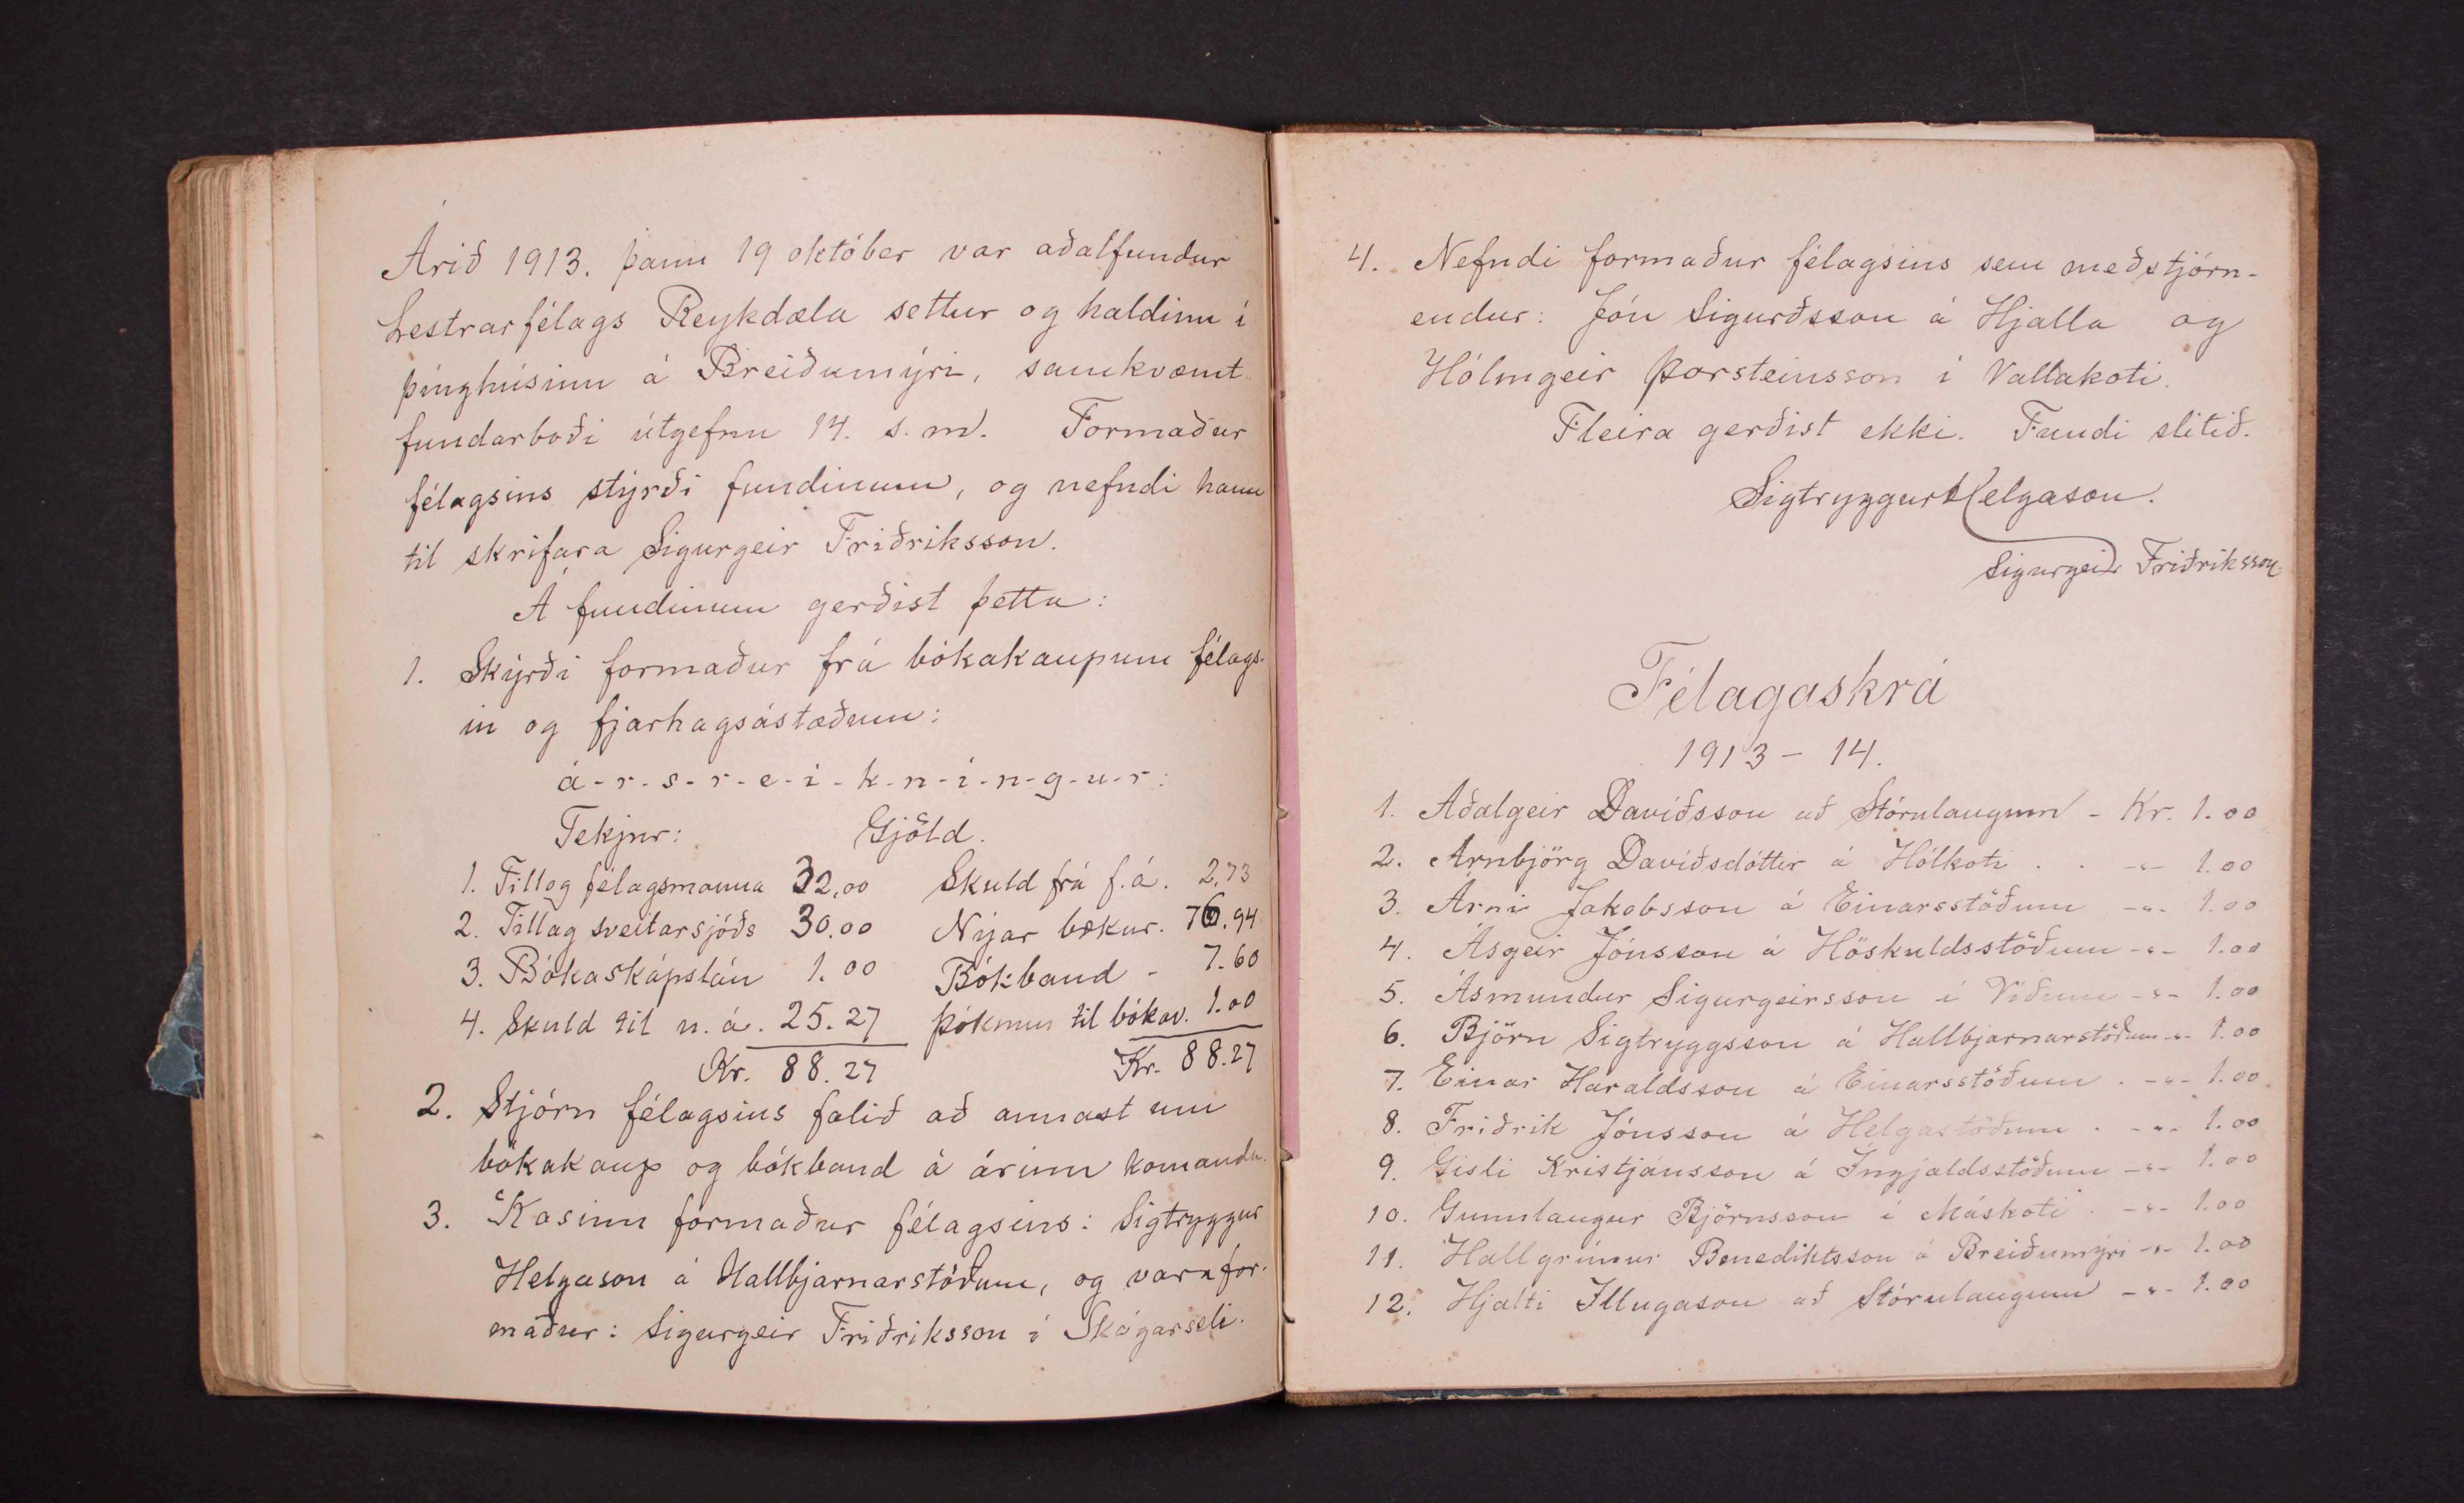 Árið 1913. þann 19 október var aðalfundur
Lestrarfélags Reykdæla settur og haldinn í
þinghúsinu á Breiðumýri, samkvæmt
fundarboði útgefnu 14. s. m. Formaður
félagsins stýrði fundinum, og nefndi hann
til skrifara Sigurgeir Friðriksson.
Á fundinum gerðist þetta:
1. Skýrði formaður frá bókakaupum félags-
in og fjarhagsástæðum:
á-r-s-r-e-i-k-n-i-n-g-u-r:
Tekjur: Gjöld.
1. Tillog félagsmanna 32,00 Skuld frá f.á. 2,73
2. Tillag sveitarsjóðs 30.00 Nýar bækur. 76.94
3. Bókaskápslán 1.00 Bókband - 7.60
4. Skuld til n. á. 25.27 þóknun til bókav. 1.00
Kr. 88.27 Kr. 88.27
2. Stjórn félagsins falið að annast um
bókakaup og bókband á árinu komandi.
3. Kosinn formaður félagsins: Sigtryggur
Helgason á Hallbjarnarstöðum, og varafor-
maður: Sigurgeir Friðriksson í Skógarseli.
4. Nefndi formaður félagsins sem meðstjórn-
endur: Jón Sigurðsson á Hjalla og
Hólmgeir Þorsteinsson í Vallakoti.
Fleira gerðist ekki. Fundi slitið.
Sigtryggur Helgason.
Sigurgeir Friðriksson.
Félagaskrá
1913 - 14.
1. Aðalgeir Davíðsson að Stórulaugum - Kr. 1.00
2. Arnbjörg Davíðsdóttir á Hólkoti . . -"- 1.00
3. Árni Jakobsson á Einarsstöðum -"- 1.00
4. Ásgeir Jónsson á Höskuldsstöðum -"- 1.00
5. Ásmundur Sigurgeirsson í Víðum -"- 1.00
6. Björn Sigtryggsson á Hallbjarnarstöðum -"- 1.00
7. Einar Haraldsson á Einarsstöðum . -"- 1.00
8. Friðrik Jónsson á Helgastöðum . -"- 1.00
9. Gísli Kristjánsson á Ingjaldsstöðum -"- 1.00
10. Gunnlaugur Björnsson í Máskoti . -"- 1.00
11. Hallgrímur Benediktsson á Breiðumýri -"- 1.00
12. Hjalti Illugason að Stórulaugum -"- 1.00